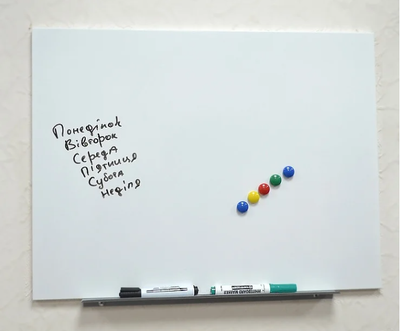 Понеділок
Вівторок
Середа
Пʼятниця
Субота
Неділя